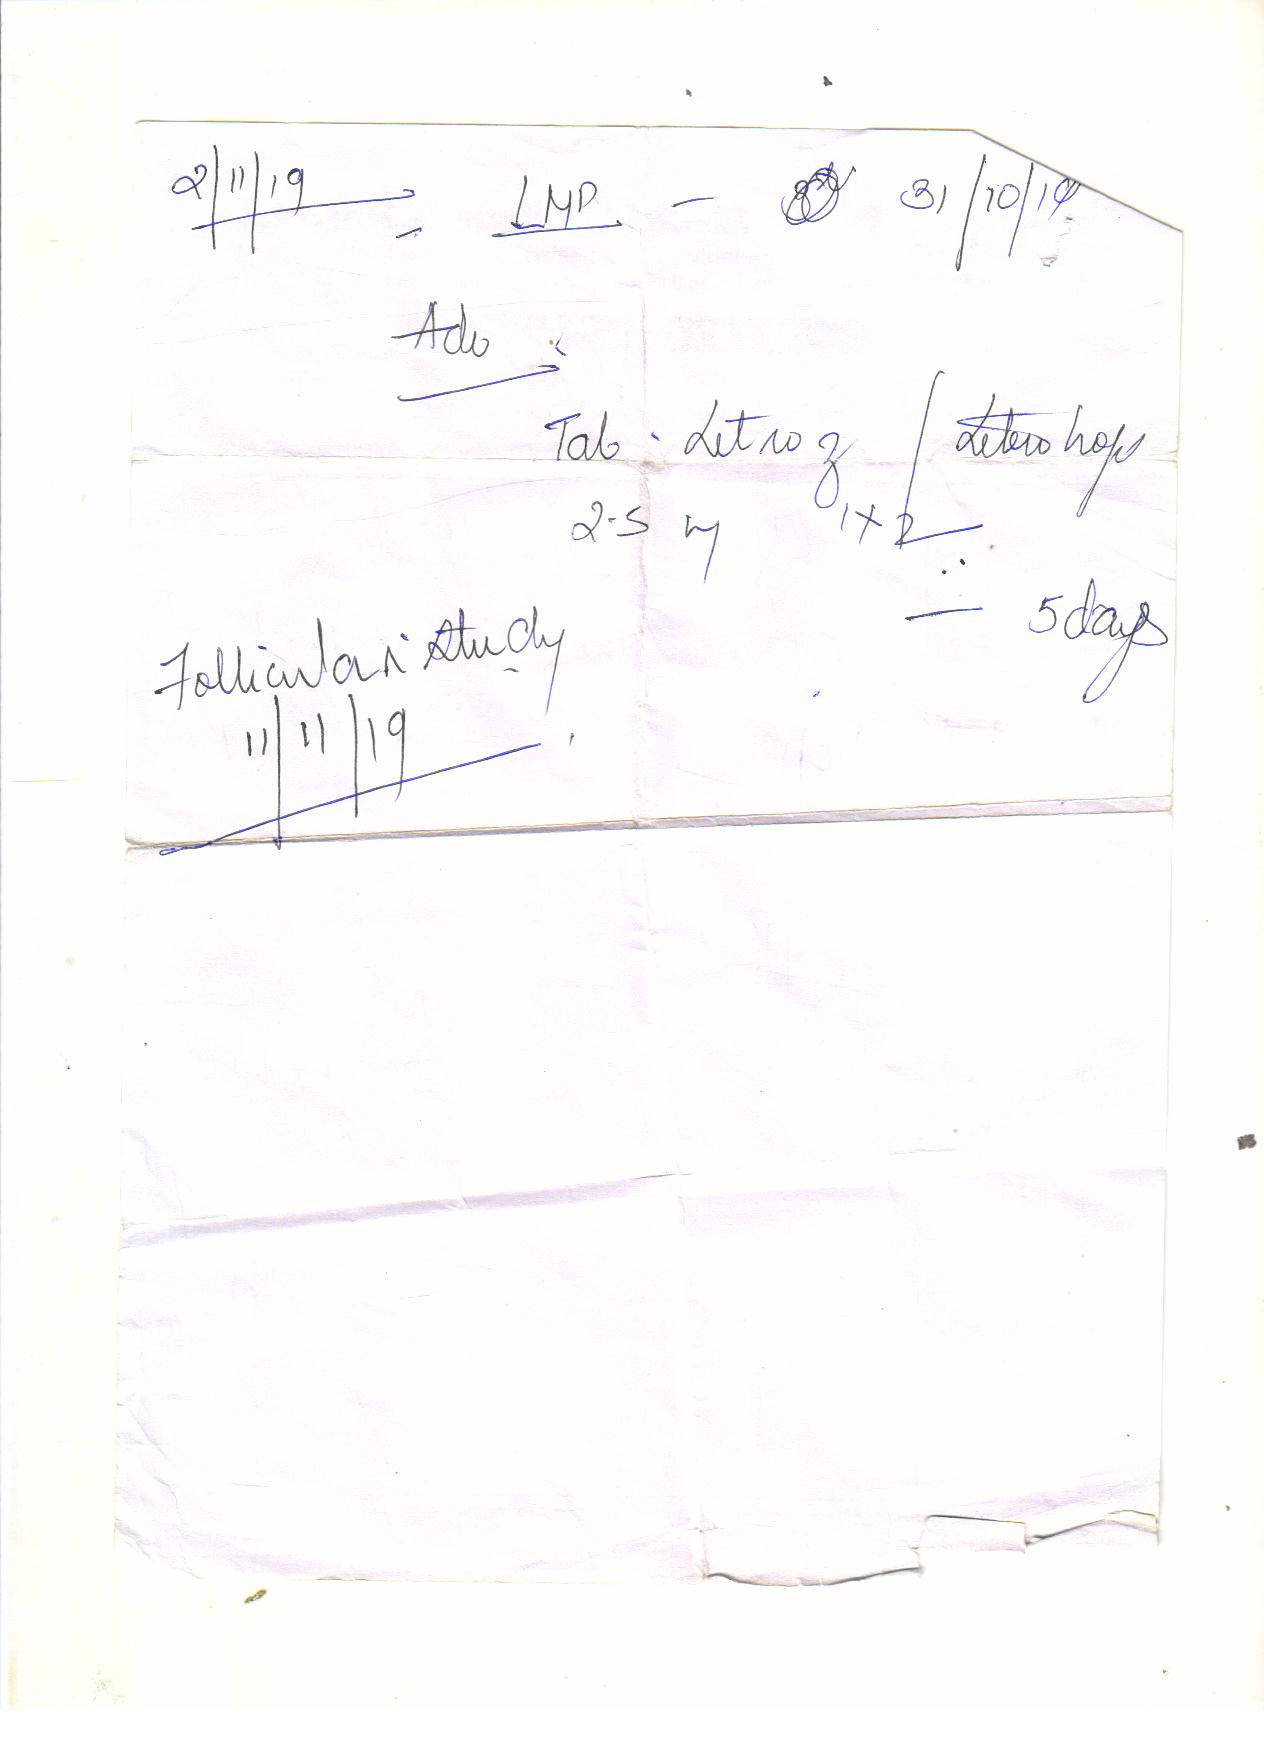 2/11/19 LMP - 31/10/19
Adv:
Tab. Letroz / Letrohope
2.5 mg 1x2
- 5 days
Follicular study
11/11/19